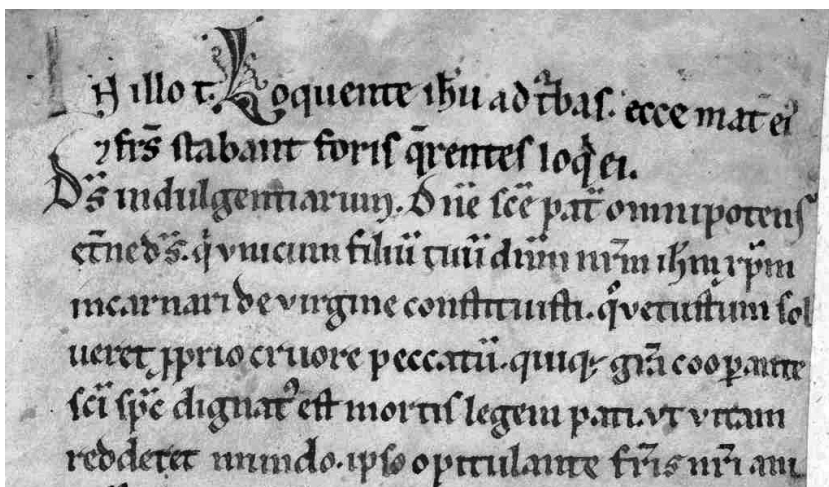 In illo t. Loquente ih̅u ad t̾bas. ecce mat̅ ei᾽
⁊ fr̅s stabant foris q̅rentes loq̇ ei.
D̅s indulgentiarum. Dn̅e sc̅e pat̅ omnipotens
et̅ne d̅s. q̇ vnicum filiu̅ tuu̅ dn̅m nr̅m ih̅m xp̅m
incarnari de virgine constituisti. q̊ vetustum sol
ueret ꝓprio cruore peccatu̅. quiq; gr̅a cooꝑante
sc̅i sp̅c dignat᾽ est mortis legem pati. vt vitam
redderet mundo. ipso opitulante fr̅is nr̅i am